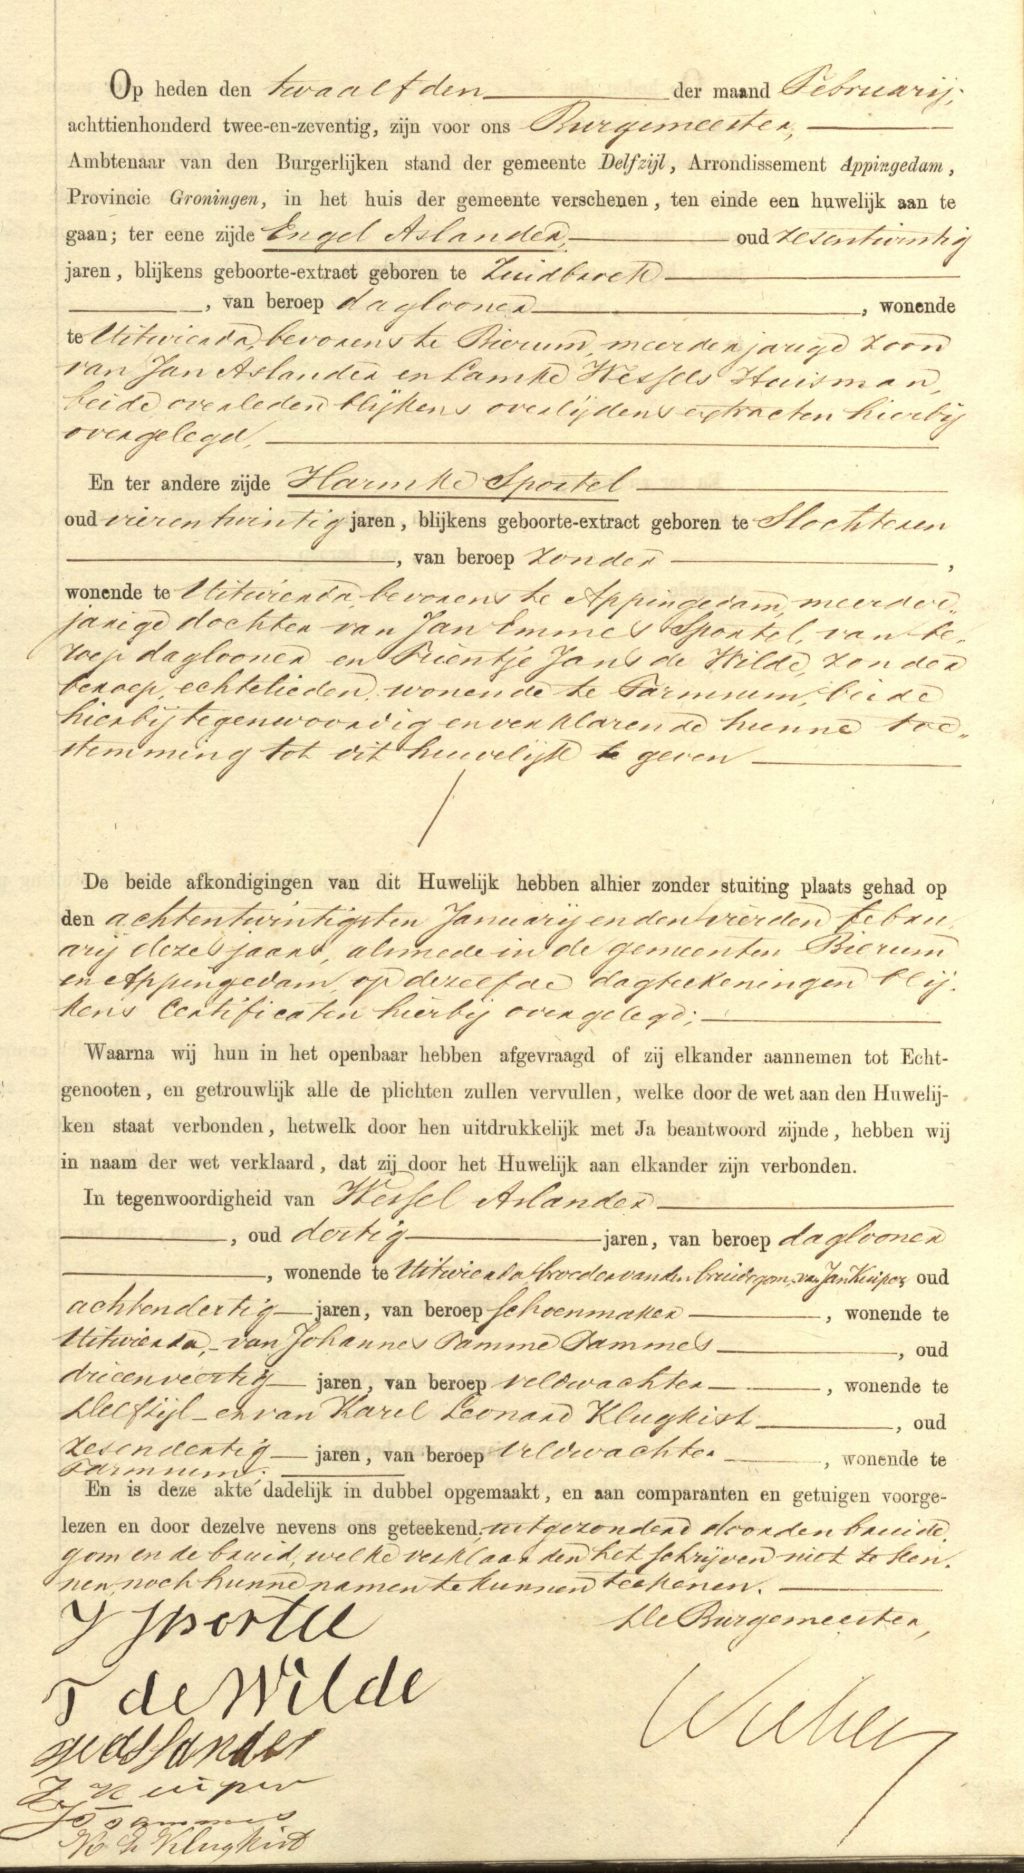 Op heden den twaalfden der maand Februarij,
achttienhonderd twee-en-zeventig, zijn voor ons Burgemeester,
Ambtenaar van den Burgerlijken stand der gemeente Delfzijl, Arrondissement Appingedam,
Provincie Groningen, in het huis der gemeente verschenen, ten einde een huwelijk aan te
gaan; ter eene zijde Engel Aslander, oud zesentwintig
jaren, blijkens geboorte-extract geboren te Zuidbroek
, van beroep daglooner, wonende
te Uitwierda, bevorens te Bierum, meerderjarige zoon
van Jan Aslander en Lamke Wessels Huisman,
beide overleden blijkens overlijdens extracten hierbij
overgelegd,
En ter andere zijde Harmke Sportel
oud vierentwintig jaren, blijkens geboorte-extract geboren te Slochteren
, van beroep zonder,
wonende te Uitwierda, bevorens te Appingedam, meerder-
jarige dochter van Jan Emmes Sportel, van be-
roep daglooner en Trientje Jans de Wilde, zonder
beroep, echtelieden, wonende te Farmsum, beide
hierbij tegenwoordig en verklarende hunne toe-
stemming tot dit huwelijk te geven
De beide afkondigingen van dit Huwelijk hebben alhier zonder stuiting plaats gehad op
den achtentwintigsten Januarij en den vierden Febru-
arij dezes jaars, alsmede in de gemeenten Bierum
en Appingedam op dezelfde dagteekeningen blij-
kens Certificaten hierbij overgelegd;
Waarna wij hun in het openbaar hebben afgevraagd of zij elkander aannemen tot Echt-
genooten, en getrouwlijk alle de plichten zullen vervullen, welke door de wet aan den Huwelij-
ken staat verbonden, hetwelk door hen uitdrukkelijk met Ja beantwoord zijnde, hebben wij
in naam der wet verklaard, dat zij door het Huwelijk aan elkander zijn verbonden.
In tegenwoordigheid van Wessel Aslander
, oud dertig jaren, van beroep daglooner
, wonende te Uitwierda broeder van den bruidegom, van Jan Kuiper, oud
achtendertig jaren, van beroep schoenmaker, wonende te
Uitwierda, van Johannes Tamme Tammes, oud
drieenveertig jaren, van beroep veldwachter, wonende te
Delfzijl en van Karel Leonard Klugkist, oud
zesendertig jaren, van beroep veldwachter, wonende te
Farmsum.
En is deze akte dadelijk in dubbel opgemaakt, en aan comparanten en getuigen voorge-
lezen en door dezelve nevens ons geteekend, uitgezonderd door den bruide-
gom en de bruid, welke verklaarden het schrijven niet te ken-
nen, noch hunne namen te kunnen teekenen.
De Burgemeester,
J Sportel
T de Wilde
W Aslander
J. Kuiper
K L Klugkist